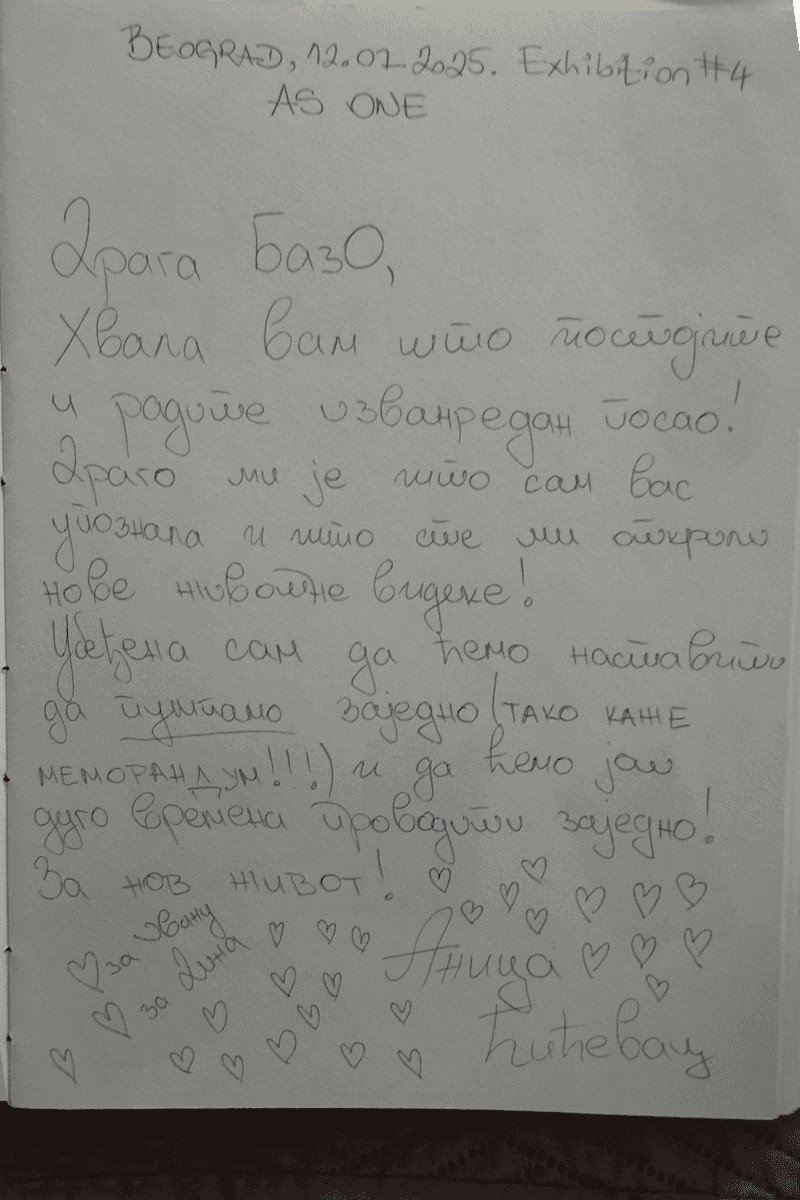 BEOGRAD, 12.07.2025. Exhibition #4
AS ONE
Драга БазО,
Хвала вам што постојите
и радите изванредан посао!
Драго ми је што сам вас
упознала и што сте ми открили
нове животне видике!
Убеђена сам да ћемо наставити
да пумпамо заједно (ТАКО КАЖЕ
МЕМОРАНДУМ!!!) и да ћемо још
дуго времена проводити заједно!
За нов живот! ♡
♡ за Ивану
♡ за Дина
Аница
Ћићевац